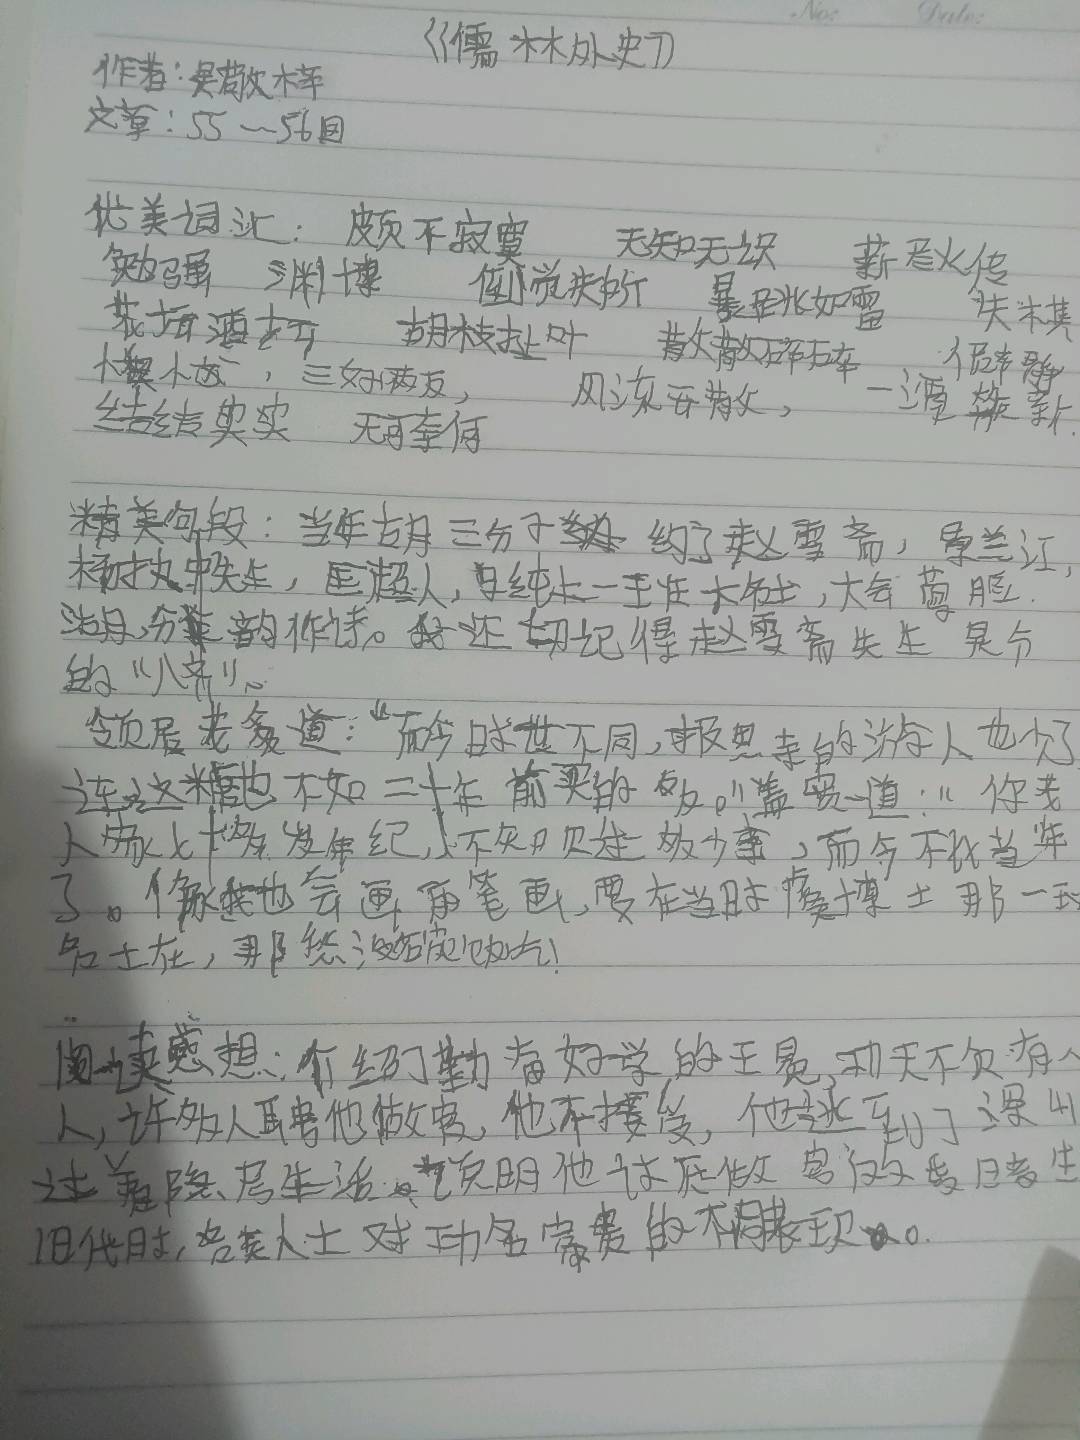 No: Date:
《儒林外史》
作者：吴敬梓
文章：55—56回
优美词汇： 颇不寂寞 无知无识 薪尽火传
勉强 渊博 流离失所 暴跳如雷
花坛酒 胡枝扯叶 散散碎碎
小 ，三好两友， 风流云散， 一
结结实实 无可奈何
精美句段：当年胡三公子 约了赵雪斋，景兰江，
杨执中先生，匡超人，马纯上一 大名士，大会莺脰
湖，分韵作诗。我还切记得赵雪斋先生是分
的“八齐”。
邻居老 道：“而今时世不同，报恩寺的游人也少了
连这糖也不如二十年前买的多。”盖宽道：“你老
人家七十多岁年纪，不知见过多少事，而今不比当年
了。像我也会画两笔画，要在当时虞博士那一班
名士在，那愁没碗饭吃！
阅读感想：介绍了勤奋好学的王冕，功夫不负有心
人，许多人聘他做官，他不接受，他逃到了深山
过着隐居生活，说明他讨厌做官
旧代时，各类人士对功名富贵的不同表现。